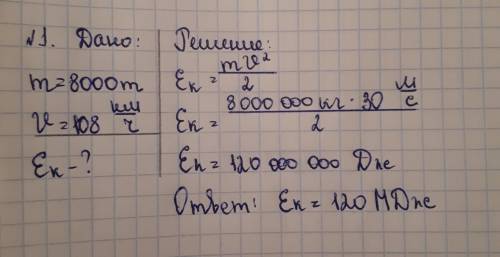 №1. Дано:
m=8000т
V=108 км/ч
Eк-?
Решение:
Eк = mV²/2
Eк = 8000 000 кг · 30 м/с / 2
Eк = 120 000 000 Дж
Ответ: Eк = 120 МДж